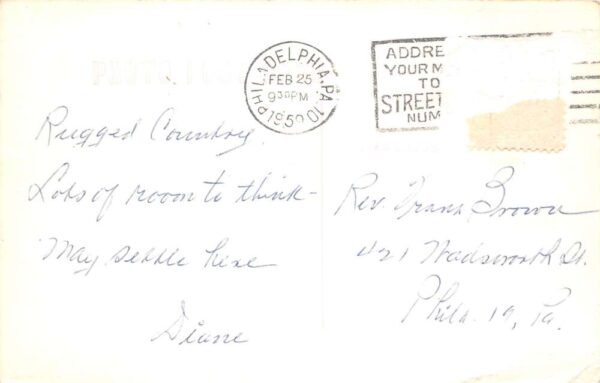 PHOTO
PHILADELPHIA, PA. 10
FEB 25
930 PM
1950
ADDRE
YOUR M
TO
STREET
NUM
Rugged Country.
Lots of rooom to think -
May settle here
Diane
Rev. Frank Brown
421 Wadsworth St.
Phila. 19, Pa.